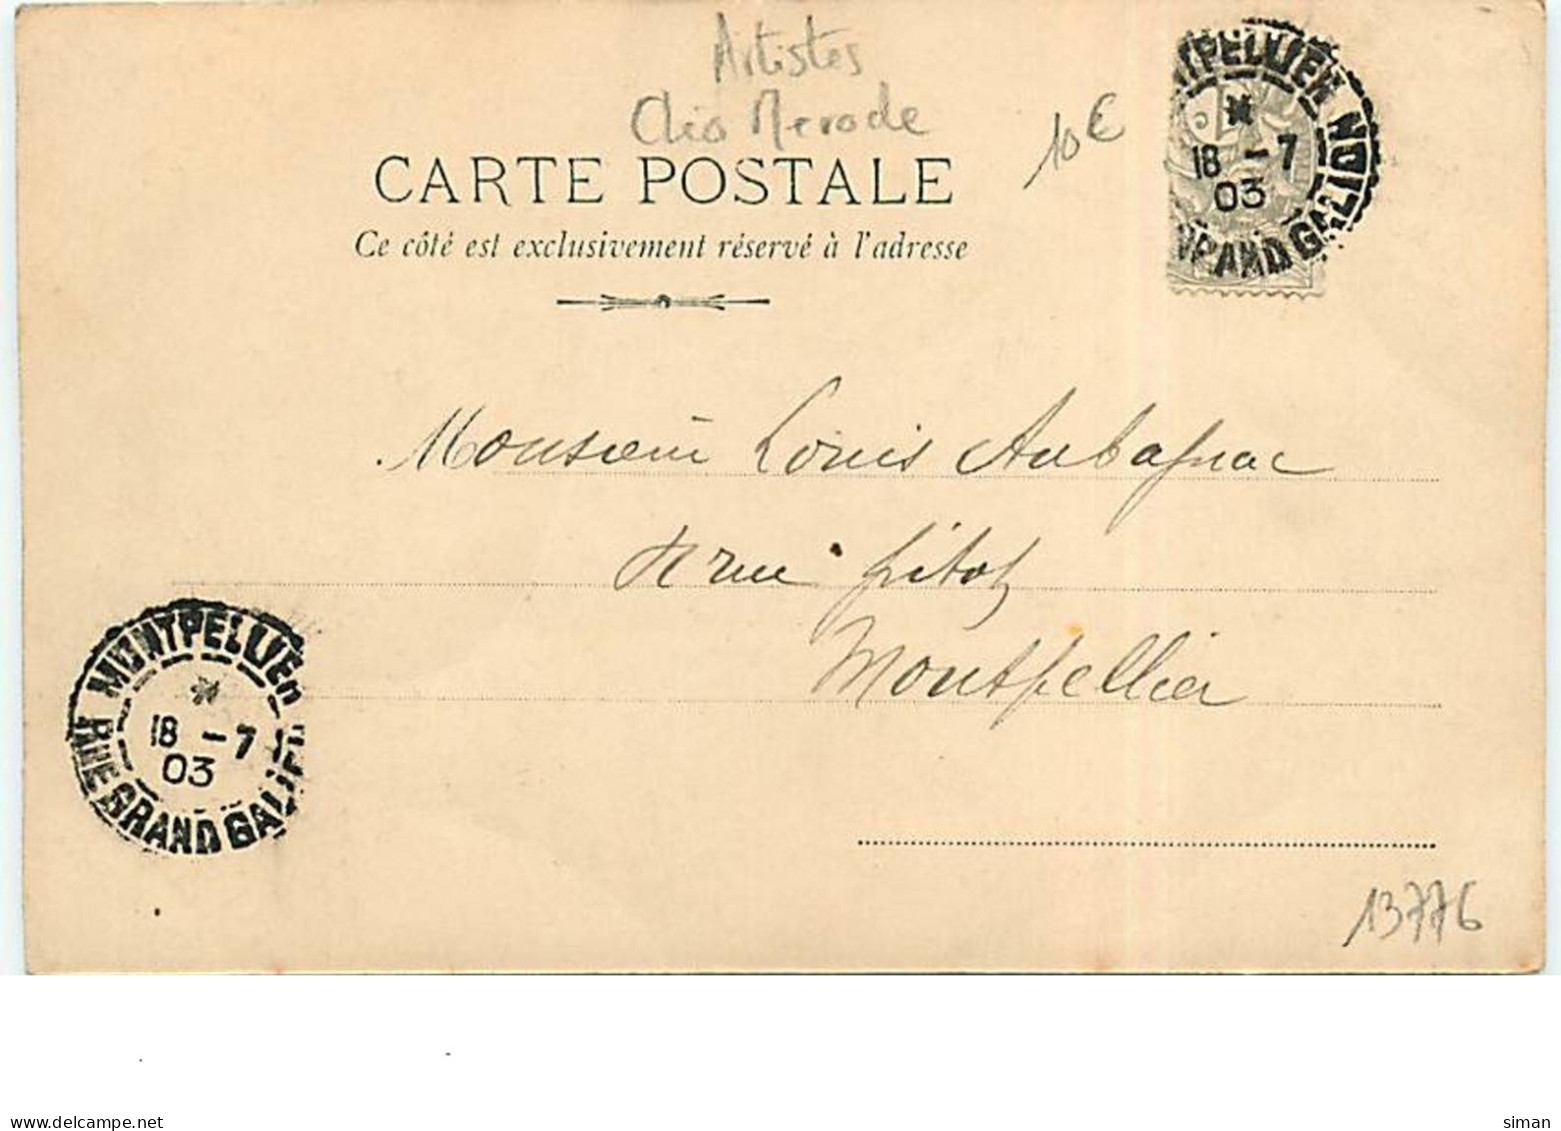 Artistes
Clio Merode
10€
CARTE POSTALE
Ce côté est exclusivement réservé à l'adresse
MONTPELLIER
18 -7
03
GRAND GALION
Monsieur Louis Aubagnac
rue Pitot
Montpellier
MONTPELLIER
18 -7
03
RUE GRAND GAL
13776
www.delcampe.net
siman